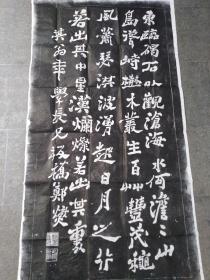 東臨碣石以觀滄海水何澹〻山
島竦峙樹木叢生百艸豐茂穐
風蕭瑟洪波湧起日月之行
若出其中星漢爛燦若出其裏
年學長兄 板橋鄭燮